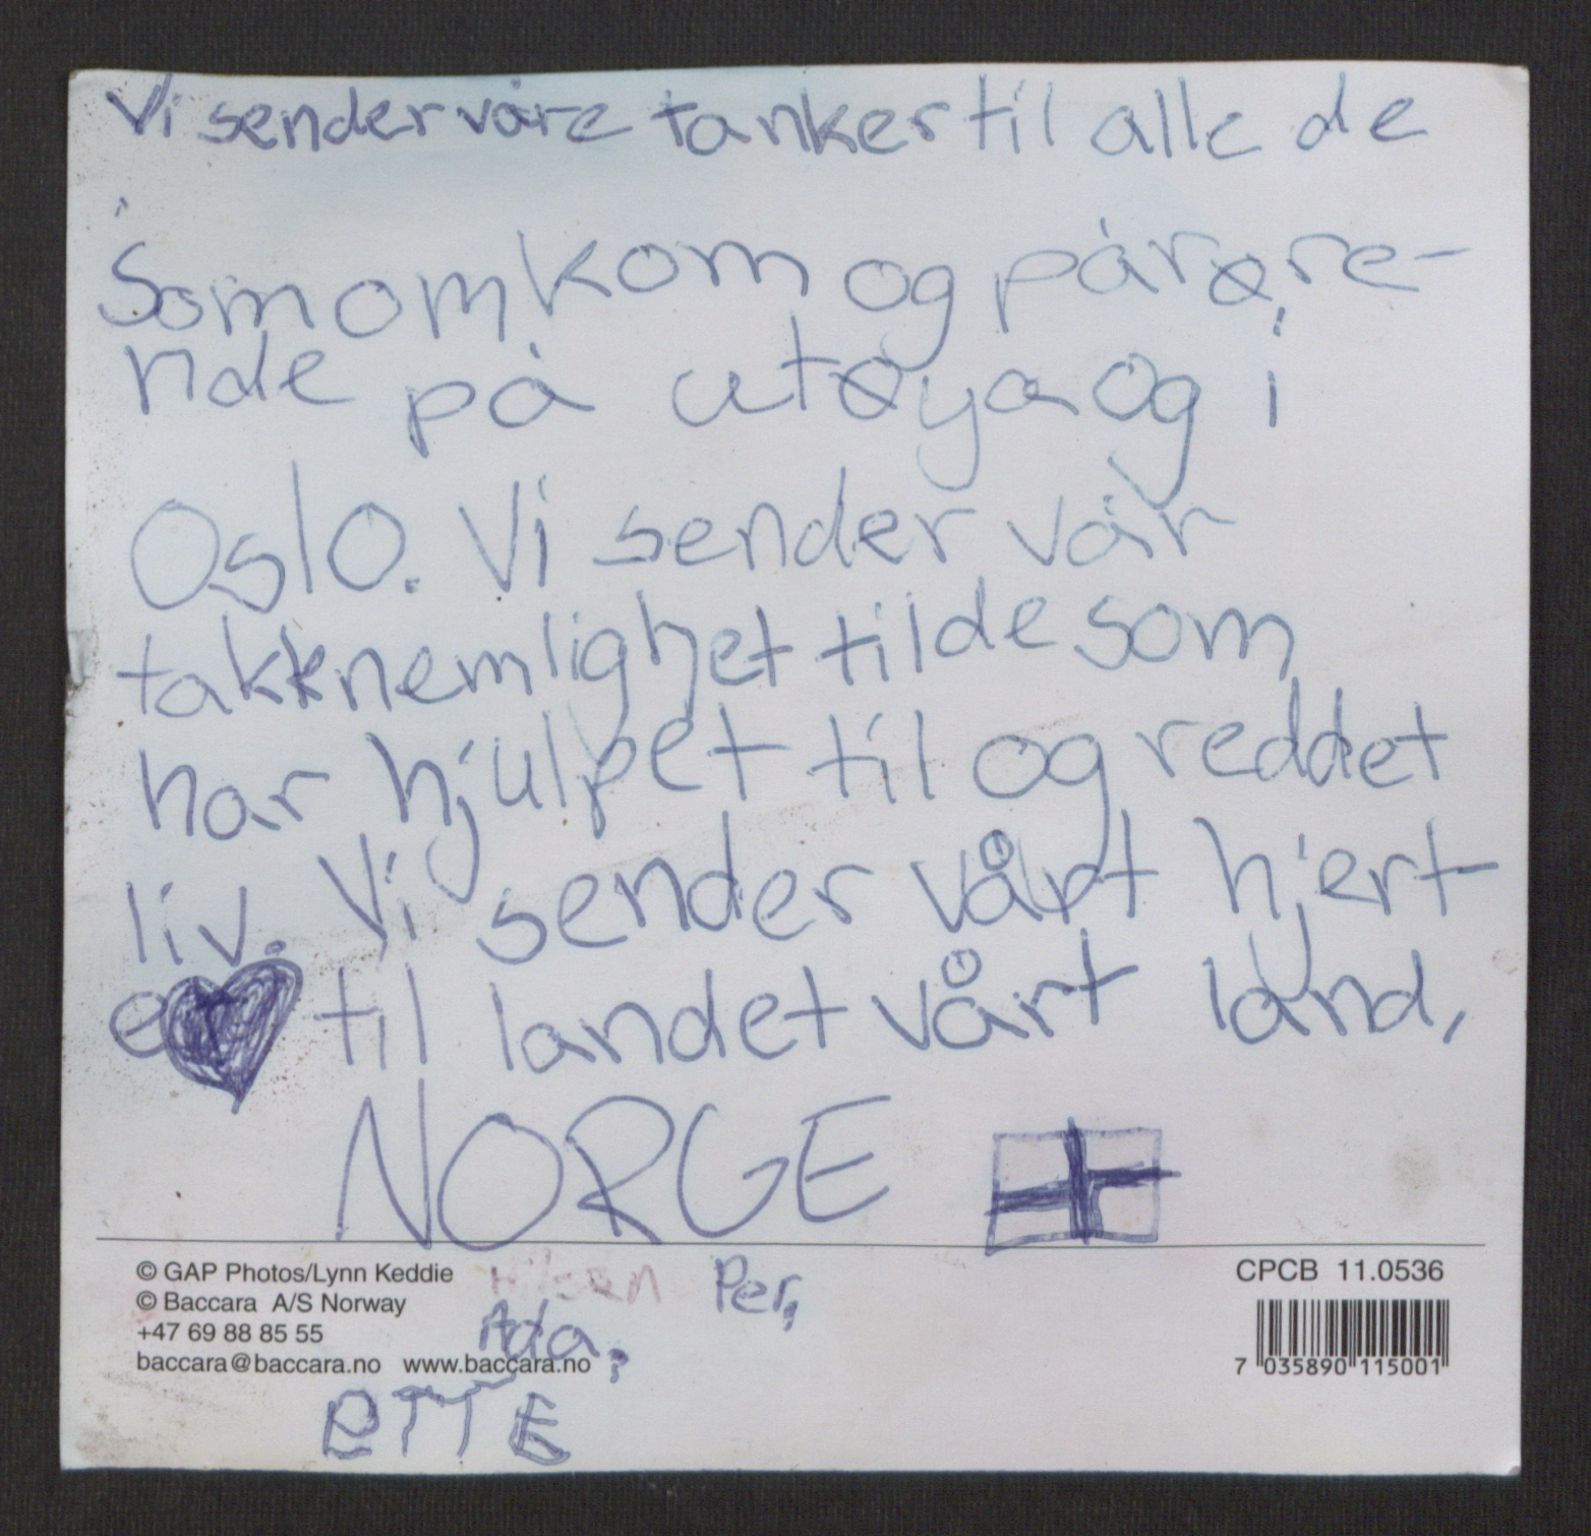 Vi sender våre tanker til alle de
som omkom og pårøre-
nde på utøya og i
Oslo. Vi sender vår
takknemlighet til de som
har hjulpet til og reddet
liv. Vi sender vårt hjert
e til landet vårt land,
NORGE
© GAP Photos/Lynn Keddie
© Baccara A/S Norway
+47 69 88 85 55
baccara@baccara.no www.baccara.no
Hilsen Per,
Ada,
ETTE
CPCB 11.0536
7 035890 115001